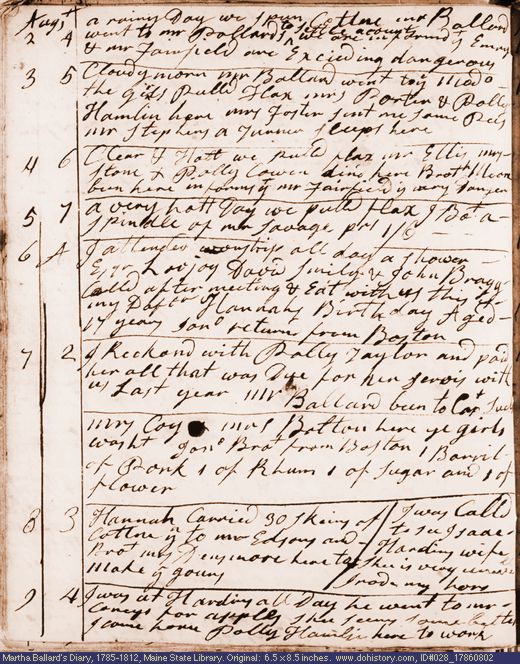 August a rainy Day we spun Cottne mr Ballard
2 4 went to mr Pollards to settle acounts
& mr Fairfield are Exceiding dangerous
3 5 Cloudy morn mr Ballard went to
the girls Pulld flax mrs Porter & Polly
Hamlin here mrs Foster sent me some Pees
mr Stephens a Turner sleeps here
4 6 Clear & Hott we pulld flax mr Ellis, mrs
Stone & Polly Cowen dind here Brot
been here informs yt mr Fairfield is very Danger
5 7 a very hott Day we pulld flax I Bot a
spindle of mr Savage prs 1/6
6 A I attended worship all day a shower
Esqr Hovjoy David Smily & John Bragg
Calld after meeting & Eat with us this is
my Dafter Hannahs Birthday Aged
17 years Jona return from Boston
7 2 I Reckond with Polly Taylor and paid
her all that was Dye for her servis with
us Last year mr Ballard been to
mrs Coy & mrs Batton here ye girls
washt Jona Brot from Boston 1 Barril
of Pork 1 of Rhum 1 of Sugar and 1 of
flower
8 3 Hannah Carried 30 skeins of
Cottne yn to mr Edsons and
Brot mrs Densmore here to
make ye gouns
I was Calld
to see Isaac
Hardins wife
shee is very unwell
I rode my hors
9 4 I was at Hardins all Day he went to mr
Conys for apples shee seems some better
I came home Polly Hamlin here to work
Martha Ballard's Diary, 1785-1812, Maine State Library. Original: 6.5 x 8.5 inches. www.dohistory.com, ID#028 17860802